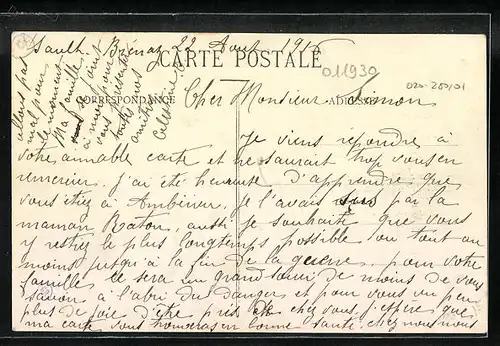 Sault-Brénaz 22 Aout 1915
CARTE POSTALE
011930
020-200/01
CORRESPONDANCE
ADRESSE
Cher Monsieur Simon
Je viens répondre à
votre aimable carte et ne saurait trop vous en
remercier. J'ai été heureuse d'apprendre que
vous étiez à Ambérieu, je l'avais sus par la
maman Raton, aussi je souhaite que vous
y restiez le plus longtemps possible ou tout au
moins jusqu'à la fin de la guerre, pour votre
famille ce sera un grand souci de moins de vous
savoir à l'abri du danger et pour vous un peu
plus de joie d'être près de chez vous. J'espère que
ma carte vous trouveras en bonne santé, chez nous nous
allons pas
mal pour
le moment
Ma famille
se joint
à moi pour
vous présenter
toutes nos
amitiés